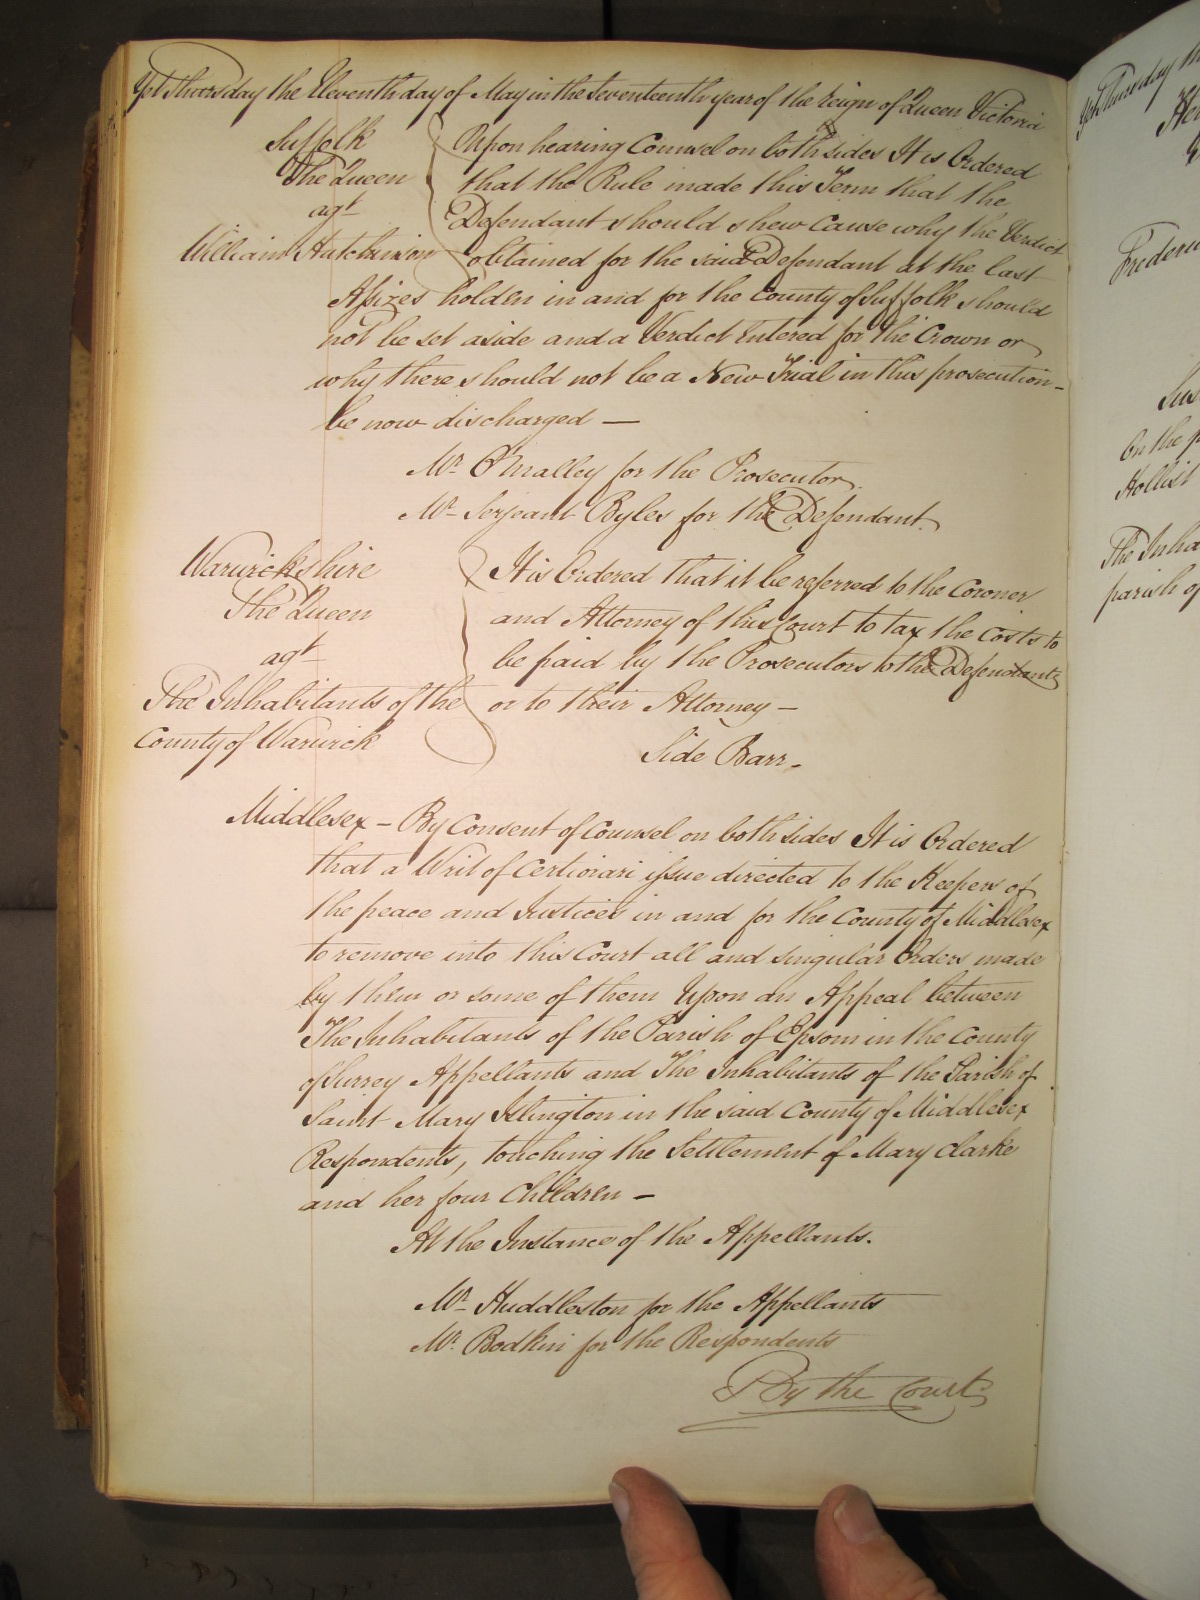 Yet Thursday the Eleventh day of May in the Seventeenth year of the Reign of Queen Victoria
Suffolk
The Queen
agt
William Hutchinson
Upon hearing Counsel on both sides It is Ordered
that the Rule made this Term that the
Defendant should shew cause why the Verdict
obtained for the said Defendant at the last
Assizes holden in and for the County of Suffolk should
not be set aside and a Verdict entered for the Crown or
why there should not be a New Trial in this prosecution
be now discharged —
Mr. O'Malley for the Prosecutor.
Mr. Serjeant Byles for the Defendant.
Warwickshire
The Queen
agt
The Inhabitants of the
County of Warwick
It is Ordered that it be referred to the Coroner
and Attorney of this Court to tax the costs to
be paid by the Prosecutors to the Defendants
or to their Attorney —
Side Barr.
Middlesex – By Consent of Counsel on both sides It is Ordered
that a Writ of Certiorari issue directed to the Keepers of
the peace and Justices in and for the County of Middlesex
to remove into this Court all and singular Orders made
by them or some of them Upon an Appeal between
The Inhabitants of the Parish of Epsom in the County
of Surrey Appellants and The Inhabitants of the Parish of
Saint Mary Islington in the said County of Middlesex
Respondents, touching the Settlement of Mary Clarke
and her four Children –
At the Instance of the Appellants.
Mr. Huddleston for the Appellants
Mr. Bodkin for the Respondents
By the Court
Yet Thursday
On the
Hollist
The Inha
parish of